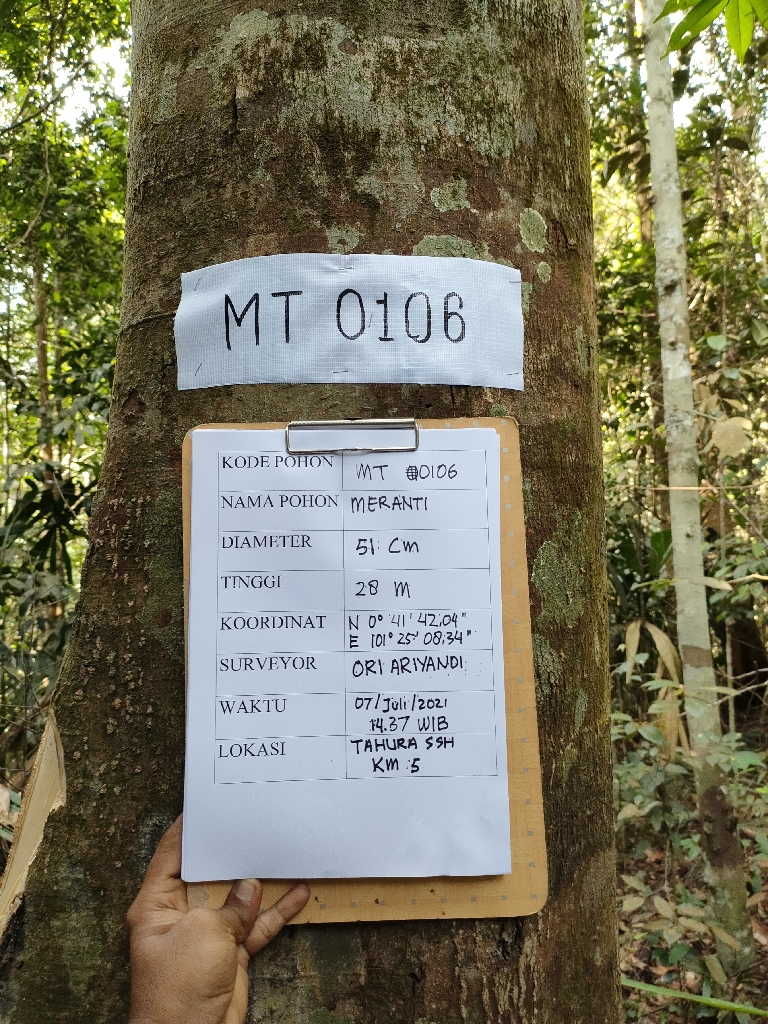 MT 0106
KODE POHON MT 0106
NAMA POHON MERANTI
DIAMETER 51 Cm
TINGGI 28 M
KOORDINAT N 0° 41' 42,04"
E 101° 25' 08,34"
SURVEYOR ORI ARIYANDI
WAKTU 07/Juli/2021
14.37 WIB
LOKASI TAHURA SSH
KM 5